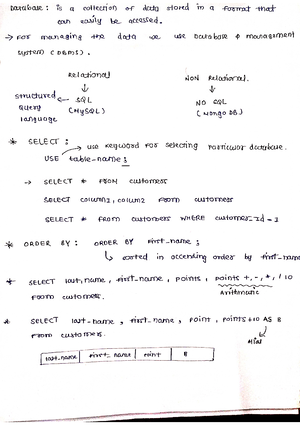 Database : is a collection of data stored in a format that
can easily be accessed.
→ For managing the data we use Database & management
system (DBMS).
Relational NON Relational
Structured ← SQL NO SQL
Query (MySQL) (MongoDB)
Language
* SELECT :
→ use keyword for selecting particular database.
USE table-name ;
→ SELECT * FROM customers
SELECT column1, column2 From customers
SELECT * From customers WHERE customer_Id = 3
* ORDER BY : ORDER BY first_name ;
sorted in accending order by first-name
* SELECT last_name, first_name, points, points +, -, *, / 10
From customers. Arithmatic
* SELECT last_name, first_name, point, points+10 AS B
From customers. Alias
last_name | first_name | point | B